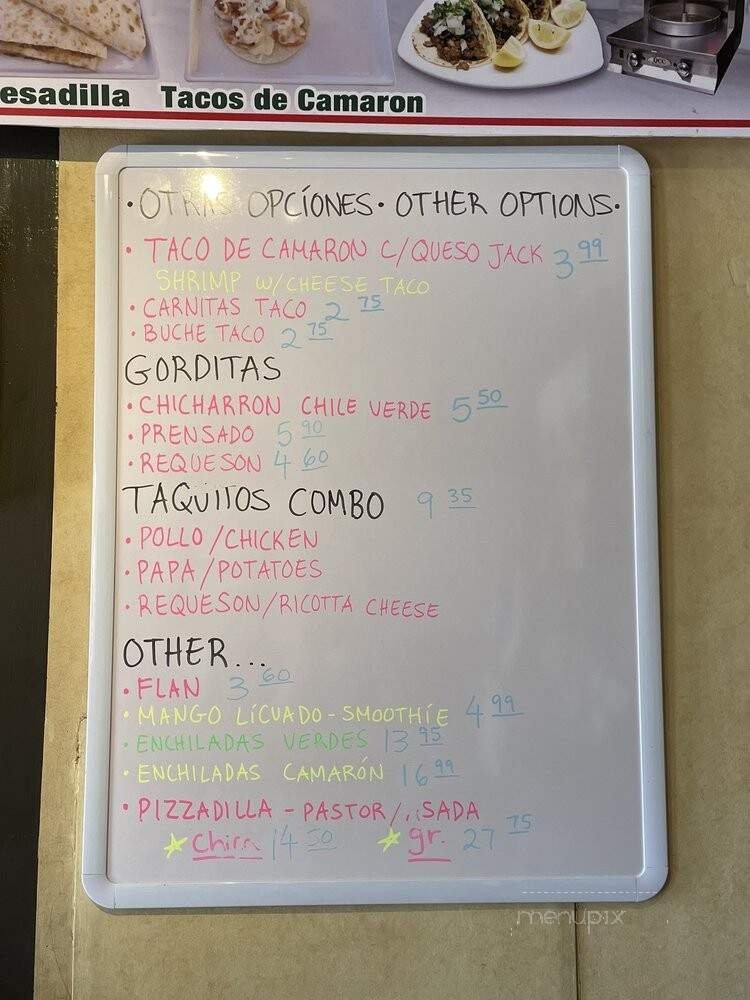 esadilla Tacos de Camaron
· OTRAS OPCÍONES · OTHER OPTIONS ·
· TACO DE CAMARON C/QUESO JACK 3 99
SHRIMP W/CHEESE TACO
· CARNITAS TACO 2 75
· BUCHE TACO 2 75
GORDITAS
· CHICHARRON CHILE VERDE 5 50
· PRENSADO 5 90
· REQUESON 4 60
TAQUITOS COMBO 9 35
· POLLO/CHICKEN
· PAPA/POTATOES
· REQUESON/RICOTTA CHEESE
OTHER...
· FLAN 3 60
· MANGO LÍCUADO-SMOOTHÍE 4 99
· ENCHILADAS VERDES 13 95
· ENCHILADAS CAMARÓN 16 99
· PIZZADILLA - PASTOR/
14 50 gr. 27 75
menupix